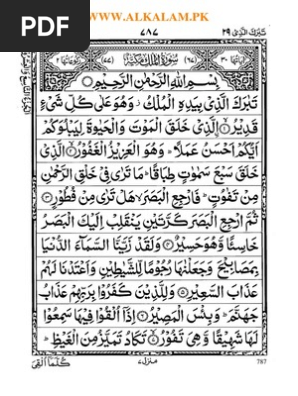 www.ALKALAM.PK
PDF
تَبٰرَكَ الَّذِىْ ٢٩
٧٨٧
سُوْرَةُ الْمُلْكِ مَكِّيَّةٌ
بِسْمِ اللّٰهِ الرَّحْمٰنِ الرَّحِيْمِ
تَبٰرَكَ الَّذِىْ بِيَدِهِ الْمُلْكُ وَهُوَ عَلٰى كُلِّ شَىْءٍ
قَدِيْرُۨ ۙ الَّذِىْ خَلَقَ الْمَوْتَ وَالْحَيٰوةَ لِيَبْلُوَكُمْ
اَيُّكُمْ اَحْسَنُ عَمَلًا ؕ وَهُوَ الْعَزِيْزُ الْغَفُوْرُ ۙ الَّذِىْ
خَلَقَ سَبْعَ سَمٰوٰتٍ طِبَاقًا ؕ مَا تَرٰى فِىْ خَلْقِ الرَّحْمٰنِ
مِنْ تَفٰوُتٍ ؕ فَارْجِعِ الْبَصَرَ ۙ هَلْ تَرٰى مِنْ فُطُوْرٍ
ثُمَّ ارْجِعِ الْبَصَرَ كَرَّتَيْنِ يَنْقَلِبْ اِلَيْكَ الْبَصَرُ
خَاسِئًا وَّهُوَ حَسِيْرٌ وَلَقَدْ زَيَّنَّا السَّمَآءَ الدُّنْيَا
بِمَصَابِيْحَ وَجَعَلْنٰهَا رُجُوْمًا لِّلشَّيٰطِيْنِ وَاَعْتَدْنَا لَهُمْ
عَذَابَ السَّعِيْرِ وَلِلَّذِيْنَ كَفَرُوْا بِرَبِّهِمْ عَذَابُ
جَهَنَّمَ ؕ وَبِئْسَ الْمَصِيْرُ اِذَآ اُلْقُوْا فِيْهَا سَمِعُوْا
لَهَا شَهِيْقًا وَّهِىَ تَفُوْرُ ۙ تَكَادُ تَمَيَّزُ مِنَ الْغَيْظِ ؕ
كُلَّمَآ اُلْقِىَ
منزل ٧
787